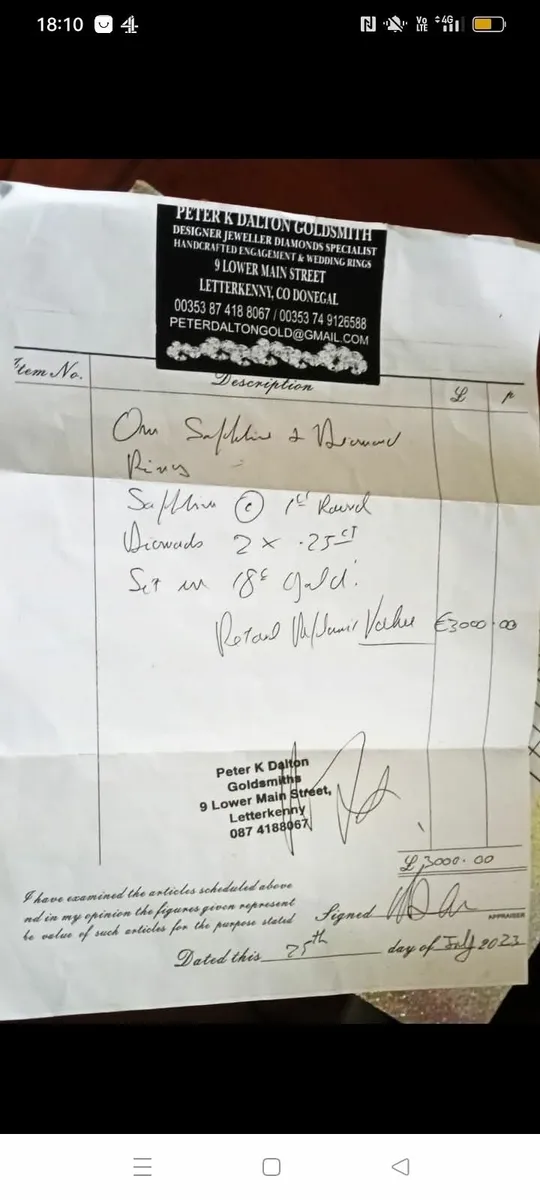 18:10
Vo LTE 4G
PETER K DALTON GOLDSMITH
DESIGNER JEWELLER DIAMONDS SPECIALIST
HANDCRAFTED ENGAGEMENT & WEDDING RINGS
9 LOWER MAIN STREET
LETTERKENNY, CO DONEGAL
00353 87 418 8067 / 00353 74 9126588
PETERDALTONGOLD@GMAIL.COM
Item No. Description £ p
One Sapphire & Diamond
Ring
Sapphire © 1ct Round
Diamonds 2 x .25ct
Set in 18c Gold.
Retail Value €3000.00
Peter K Dalton
Goldsmiths
9 Lower Main Street,
Letterkenny
087 4188067
£ 3000.00
I have examined the articles scheduled above
nd in my opinion the figures given represent
he value of such articles for the purpose stated
Signed APPRAISER
Dated this 25th day of July 2023